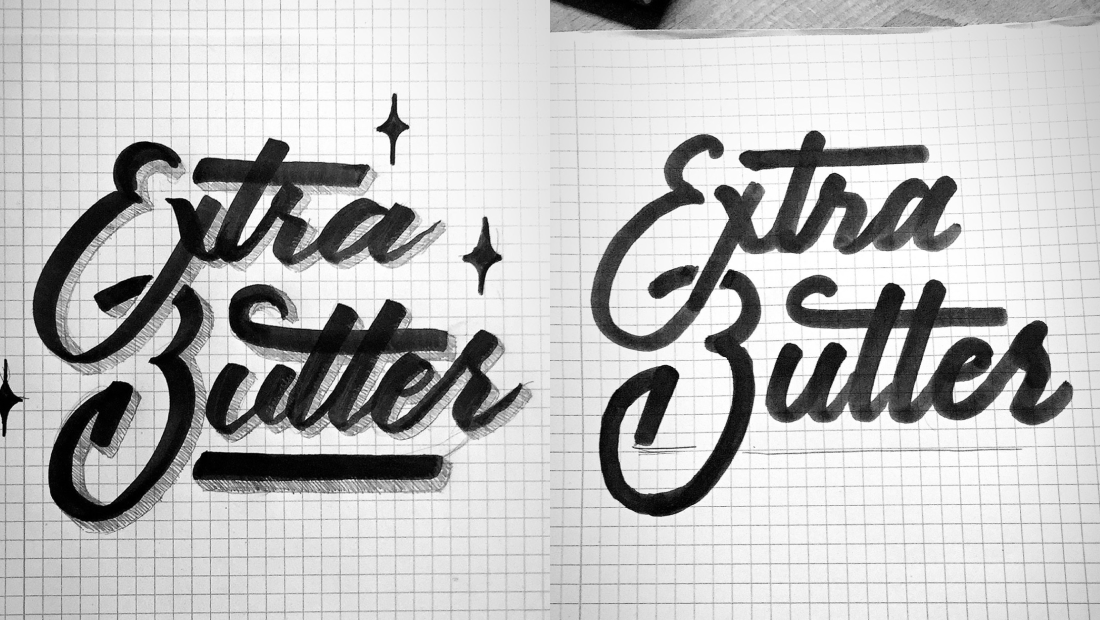 Extra
Butter
Extra
Butter